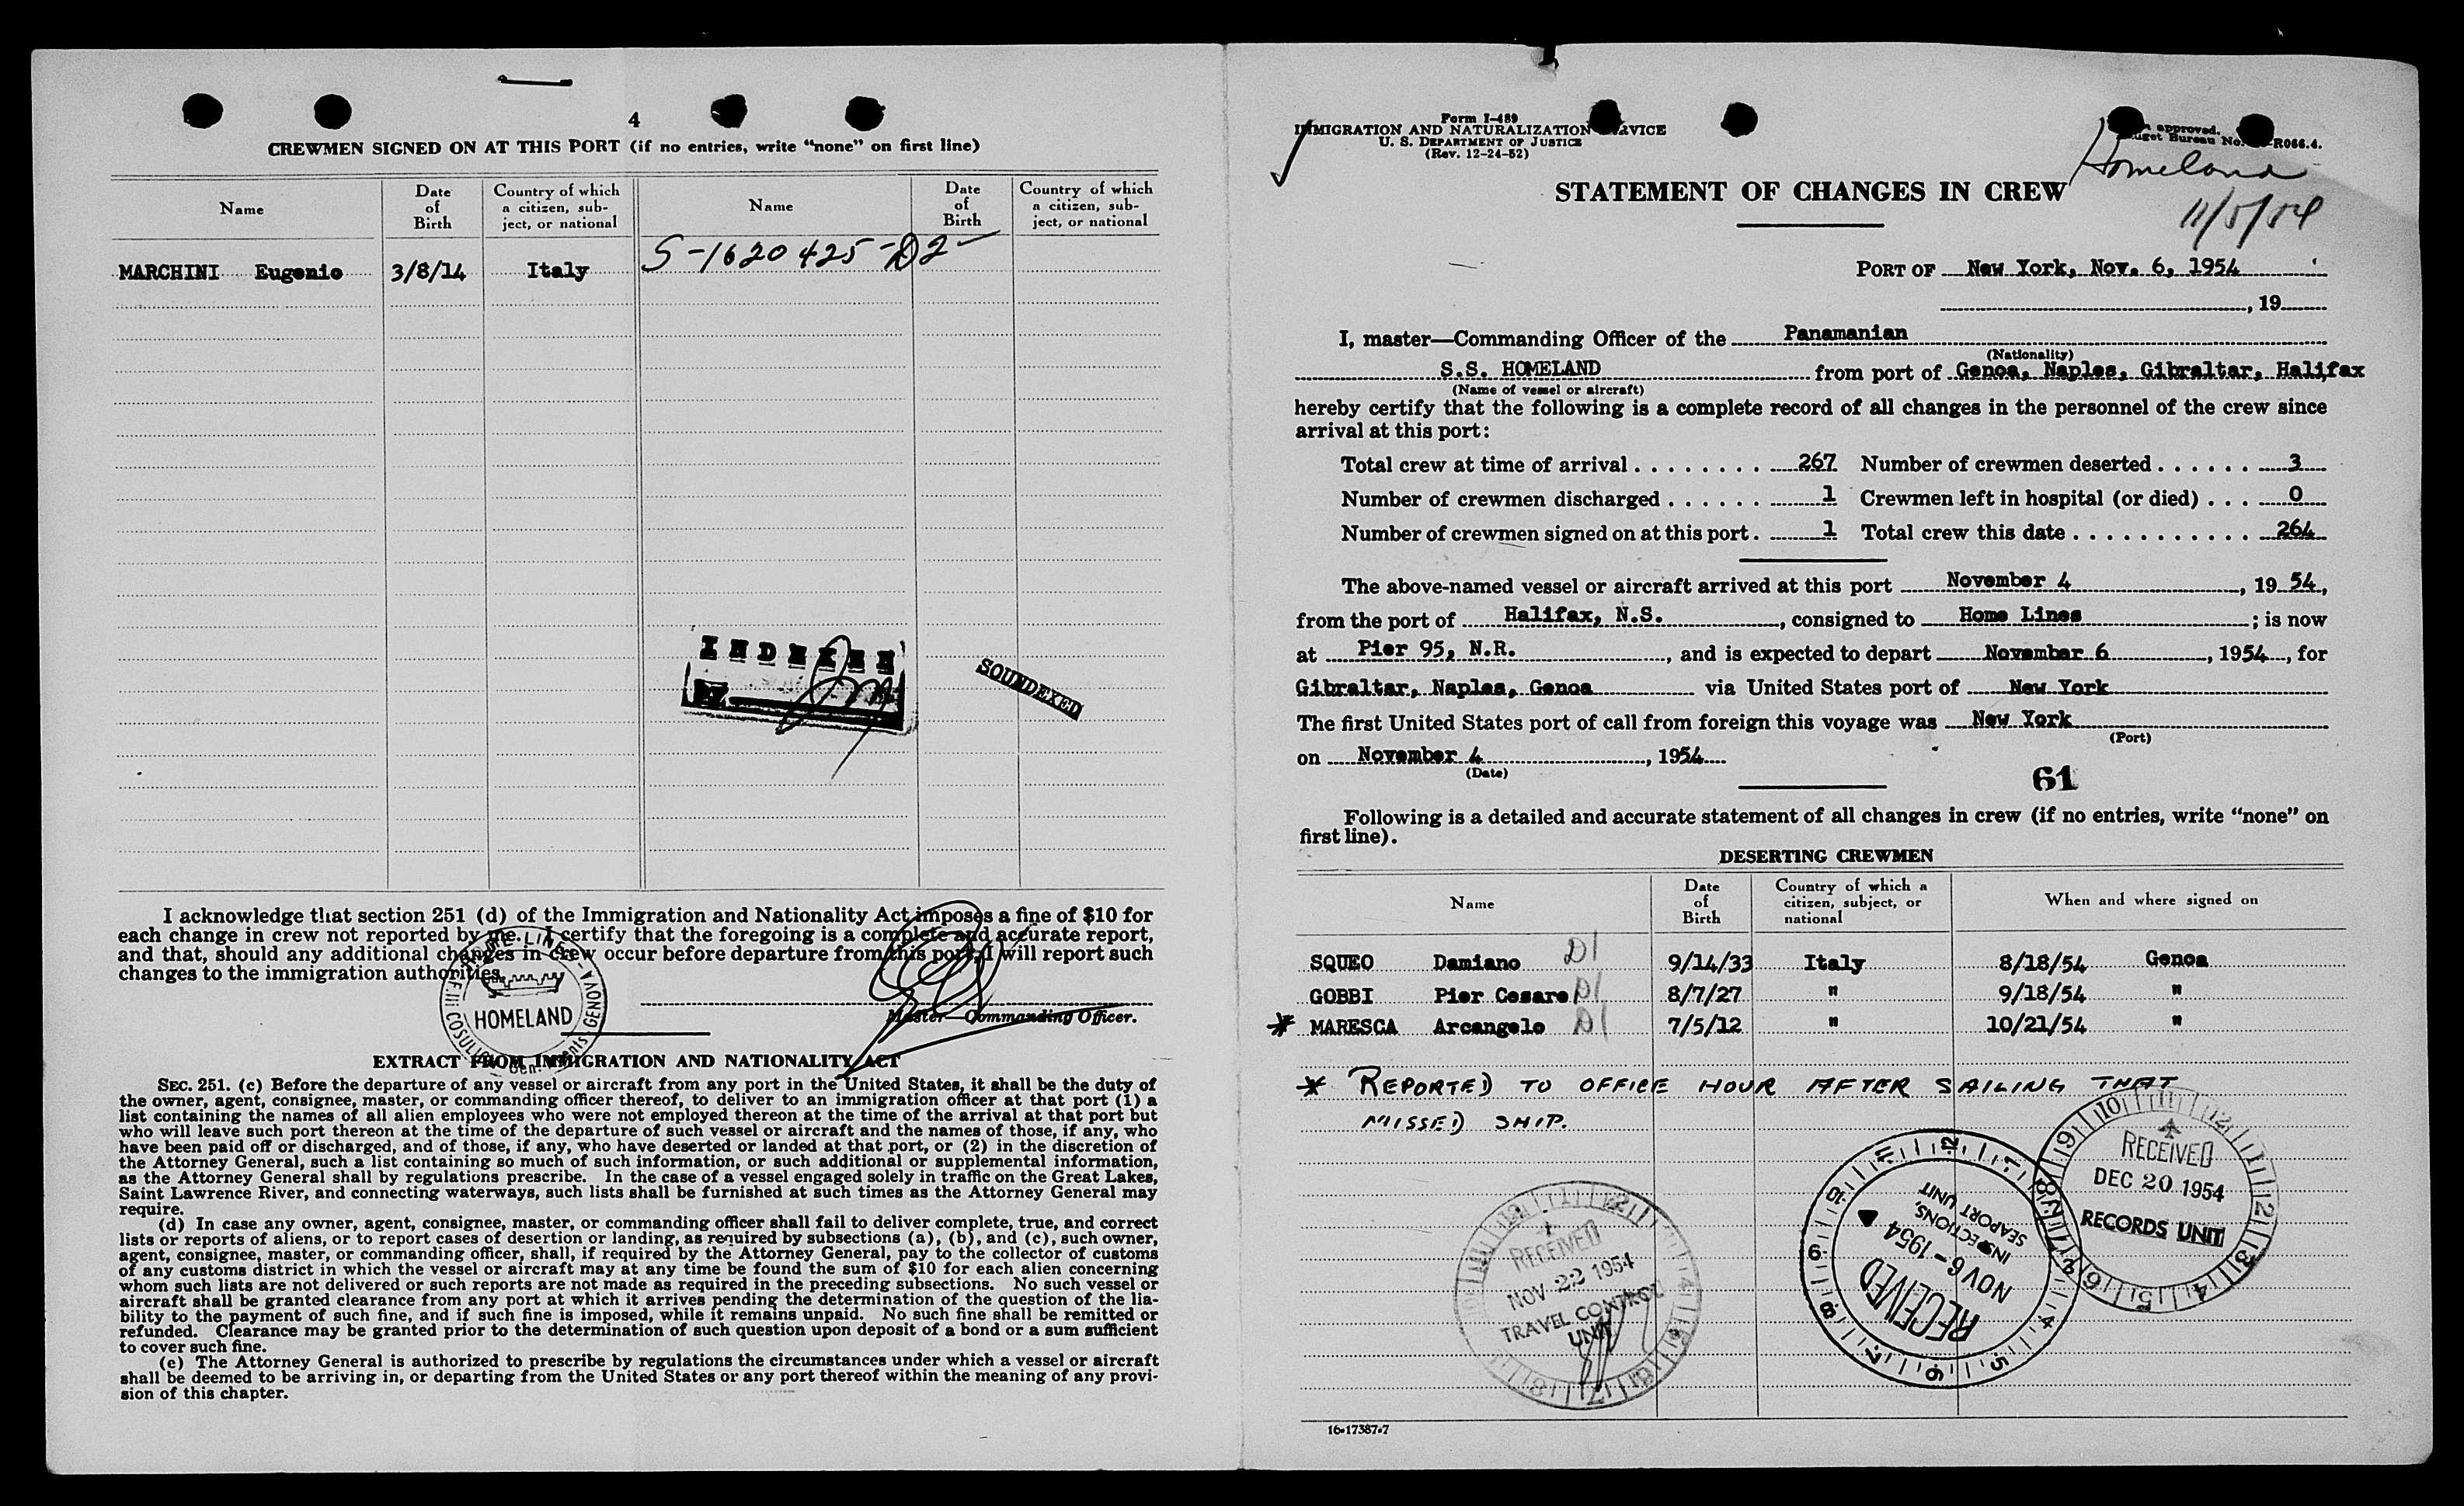 4
CREWMEN SIGNED ON AT THIS PORT (if no entries, write “none” on first line)
Name
Date of Birth
Country of which a citizen, subject, or national
Name
Date of Birth
Country of which a citizen, subject, or national
MARCHINI Eugenio 3/8/14 Italy S-1620425-D2
INDEXED
SOUNDEXED
I acknowledge that section 251 (d) of the Immigration and Nationality Act imposes a fine of $10 for
each change in crew not reported by me. I certify that the foregoing is a complete and accurate report,
and that, should any additional changes in crew occur before departure from this port, I will report such
changes to the immigration authorities.
HOMELAND
Master—Commanding Officer.
EXTRACT FROM IMMIGRATION AND NATIONALITY ACT
SEC. 251. (c) Before the departure of any vessel or aircraft from any port in the United States, it shall be the duty of
the owner, agent, consignee, master, or commanding officer thereof, to deliver to an immigration officer at that port (1) a
list containing the names of all alien employees who were not employed thereon at the time of the arrival at that port but
who will leave such port thereon at the time of the departure of such vessel or aircraft and the names of those, if any, who
have been paid off or discharged, and of those, if any, who have deserted or landed at that port, or (2) in the discretion of
the Attorney General, such a list containing so much of such information, or such additional or supplemental information,
as the Attorney General shall by regulations prescribe. In the case of a vessel engaged solely in traffic on the Great Lakes,
Saint Lawrence River, and connecting waterways, such lists shall be furnished at such times as the Attorney General may
require.
(d) In case any owner, agent, consignee, master, or commanding officer shall fail to deliver complete, true, and correct
lists or reports of aliens, or to report cases of desertion or landing, as required by subsections (a), (b), and (c), such owner,
agent, consignee, master, or commanding officer, shall, if required by the Attorney General, pay to the collector of customs
of any customs district in which the vessel or aircraft may at any time be found the sum of $10 for each alien concerning
whom such lists are not delivered or such reports are not made as required in the preceding subsections. No such vessel or
aircraft shall be granted clearance from any port at which it arrives pending the determination of the question of the lia-
bility to the payment of such fine, and if such fine is imposed, while it remains unpaid. No such fine shall be remitted or
refunded. Clearance may be granted prior to the determination of such question upon deposit of a bond or a sum sufficient
to cover such fine.
(e) The Attorney General is authorized to prescribe by regulations the circumstances under which a vessel or aircraft
shall be deemed to be arriving in, or departing from the United States or any port thereof within the meaning of any provi-
sion of this chapter.
Form I-489
IMMIGRATION AND NATURALIZATION SERVICE
U. S. DEPARTMENT OF JUSTICE
(Rev. 12-24-52)
approved.
Budget Bureau No. -R066.4.
Homeland
11/5/54
STATEMENT OF CHANGES IN CREW
PORT OF New York, Nov. 6, 1954
, 19
I, master—Commanding Officer of the Panamanian
(Nationality)
S.S. HOMELAND from port of Genoa, Naples, Gibraltar, Halifax
(Name of vessel or aircraft)
hereby certify that the following is a complete record of all changes in the personnel of the crew since
arrival at this port:
Total crew at time of arrival 267 Number of crewmen deserted 3
Number of crewmen discharged 1 Crewmen left in hospital (or died) 0
Number of crewmen signed on at this port 1 Total crew this date 264
The above-named vessel or aircraft arrived at this port November 4, 1954,
from the port of Halifax, N.S., consigned to Home Lines; is now
at Pier 95, N.R., and is expected to depart November 6, 1954, for
Gibraltar, Naples, Genoa via United States port of New York
The first United States port of call from foreign this voyage was New York
(Port)
on November 4, 1954
(Date)
61
Following is a detailed and accurate statement of all changes in crew (if no entries, write “none” on
first line).
DESERTING CREWMEN
Name
Date of Birth
Country of which a citizen, subject, or national
When and where signed on
SQUEO Damiano D1 9/14/33 Italy 8/18/54 Genoa
GOBBI Pier Cesare D1 8/7/27 " 9/18/54 "
* MARESCA Arcangelo D1 7/5/12 " 10/21/54 "
* REPORTED TO OFFICE HOUR AFTER SAILING THAT
MISSED SHIP.
RECEIVED
DEC 20 1954
RECORDS UNIT
RECEIVED
NOV 6 - 1954
INSPECTIONS,
SEAPORT UNIT
RECEIVED
NOV 22 1954
TRAVEL CONTROL
UNIT
16-17387-7